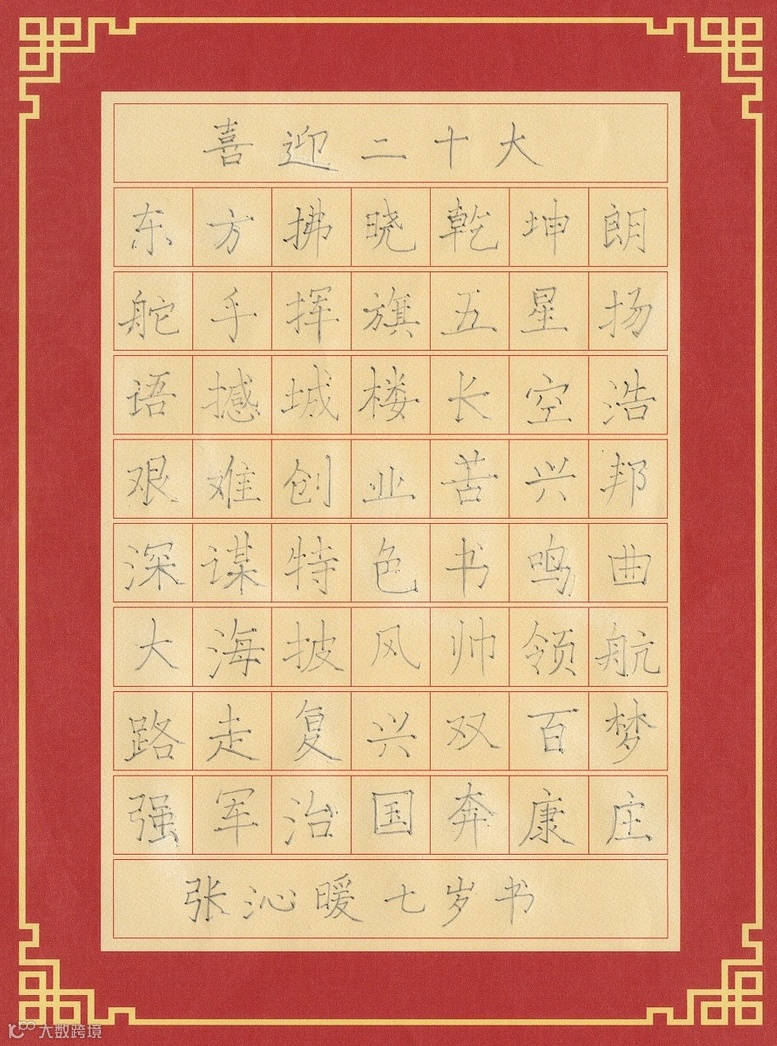 喜迎二十大
东方拂晓乾坤朗
舵手挥旗五星扬
语撼城楼长空浩
艰难创业苦兴邦
深谋特色书鸣曲
大海披风帅领航
路走复兴双百梦
强军治国奔康庄
张沁暖七岁书
大数跨境